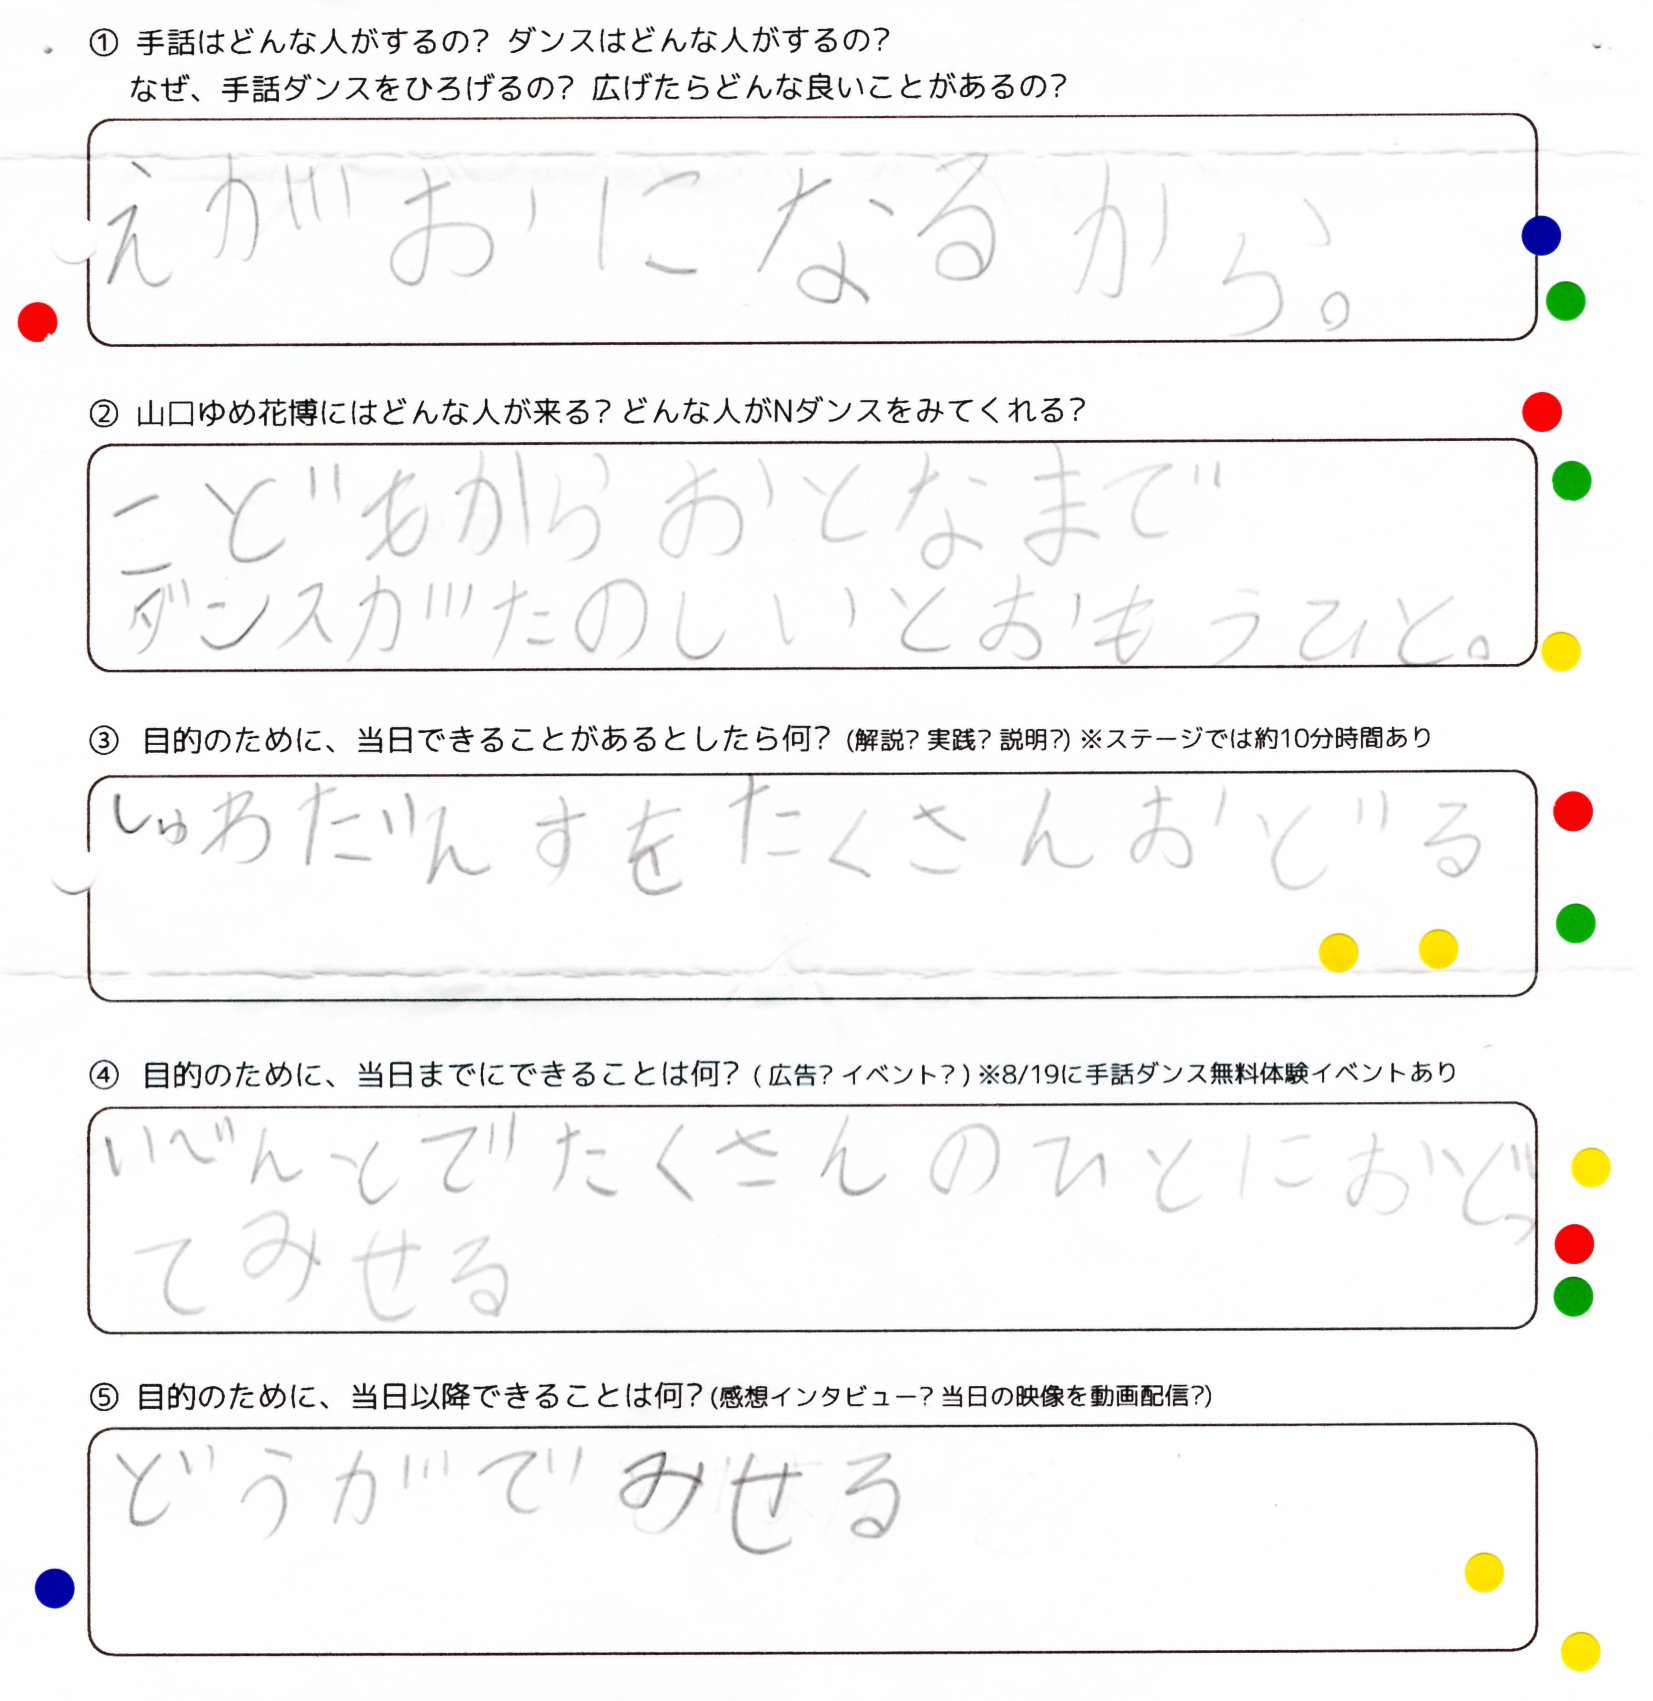 ① 手話はどんな人がするの? ダンスはどんな人がするの?
なぜ、手話ダンスをひろげるの? 広げたらどんな良いことがあるの?
えがおになるから。
② 山口ゆめ花博にはどんな人が来る? どんな人がNダンスをみてくれる?
こどもからおとなまで
ダンスガたのしいとおもうひと。
③ 目的のために、当日できることがあるとしたら何? (解説? 実践? 説明?) ※ステージでは約10分時間あり
しゅわだんすをたくさんおどる
④ 目的のために、当日までにできることは何? ( 広告? イベント? ) ※8/19に手話ダンス無料体験イベントあり
いべんとでたくさんのひとにおどっ
てみせる
⑤ 目的のために、当日以降できることは何? (感想インタビュー? 当日の映像を動画配信?)
どうがでみせる